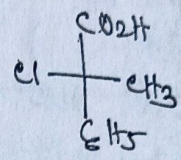 CO2H
Cl CH3
C6H5